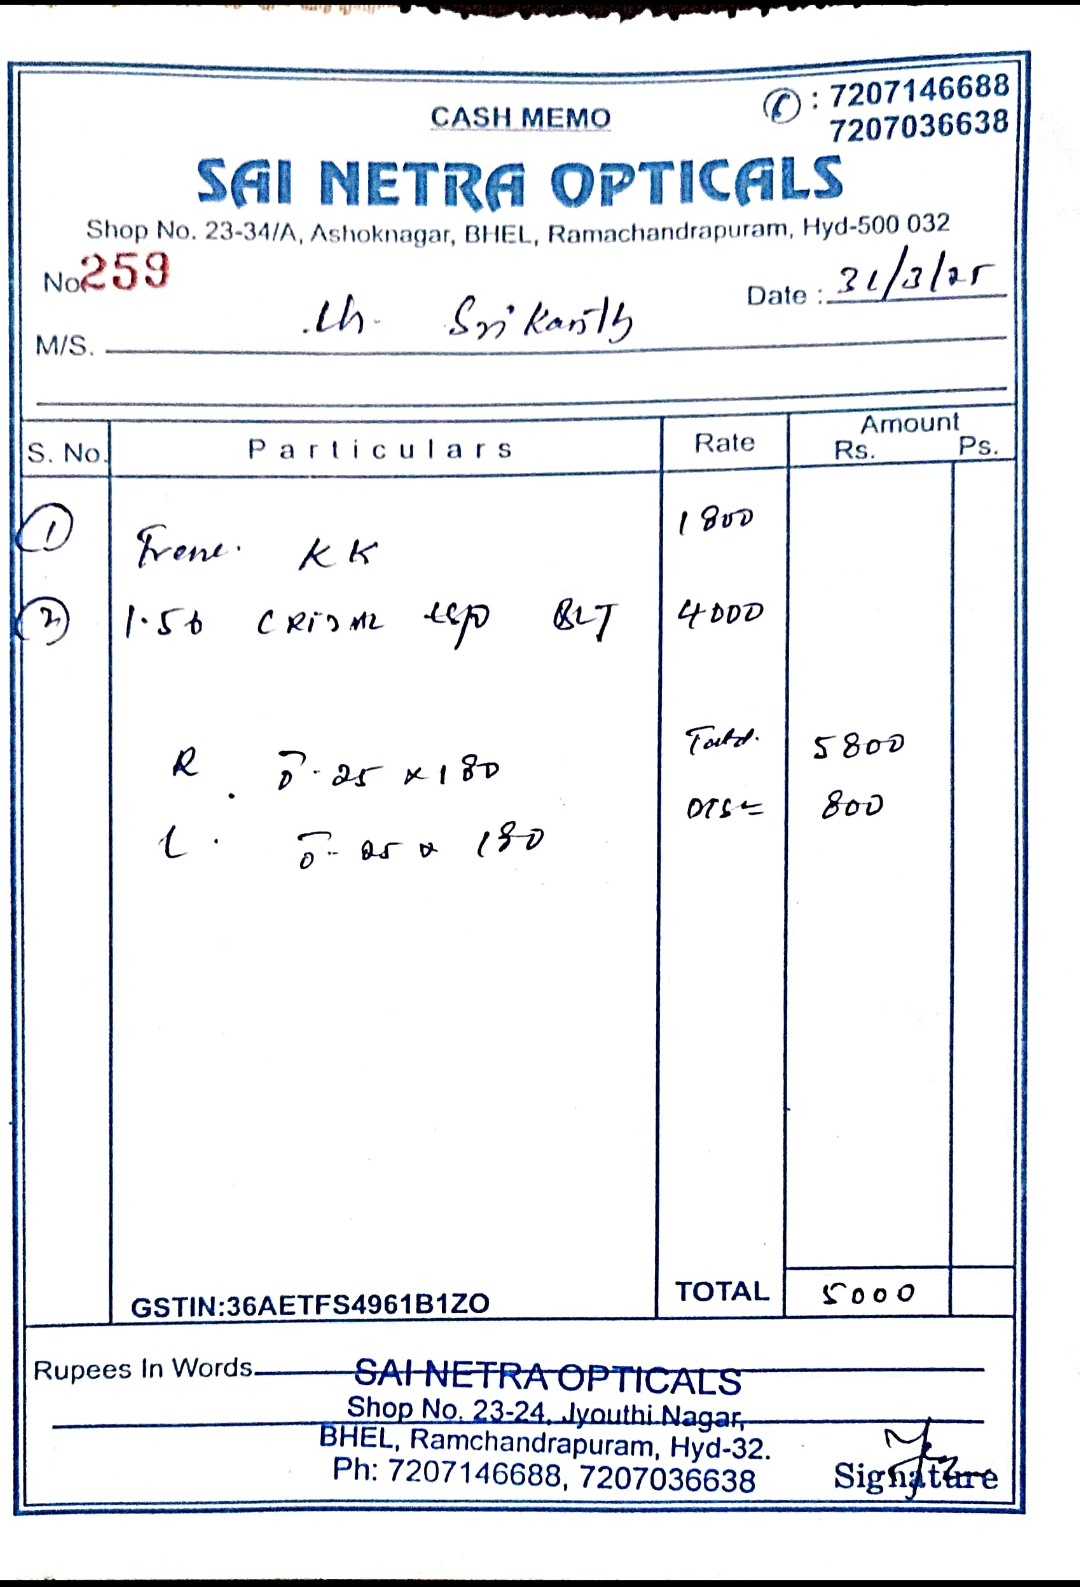 CASH MEMO
: 7207146688
7207036638
SAI NETRA OPTICALS
Shop No. 23-34/A, Ashoknagar, BHEL, Ramachandrapuram, Hyd-500 032
No 259
Date : 31/3/25
M/S. Ch. Srikanth
S. No. Particulars Rate Amount Rs. Ps.
1 Frame. KK 1800
2 1.56 CRIZAL BLT 4000
Total. 5800
R -0.25 x 180
Disc 800
L. -0.25 x 180
GSTIN:36AETFS4961B1ZO TOTAL 5000
Rupees In Words
SAI NETRA OPTICALS
Shop No. 23-24, Jyouthi Nagar,
BHEL, Ramchandrapuram, Hyd-32.
Ph: 7207146688, 7207036638
Signature